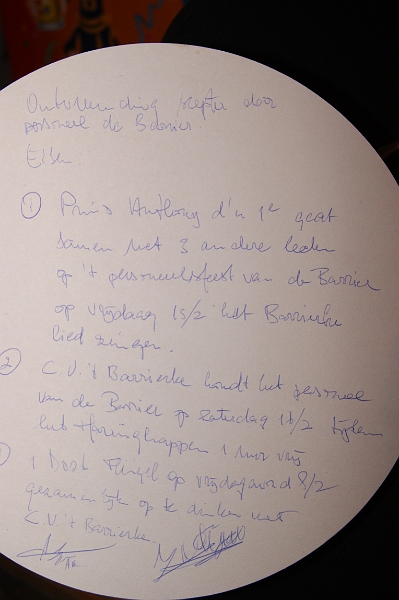 Ontvreemding scepter door
personeel de Barrier.
Eisen.
① Prins Anthony d'n 1e gaat
samen met 3 andere leden
op 't personeelsfeest van de Barrier
op vrijdag 15/2 het Barrierke
lied zingen.
② C.V. 't Barrierke houdt het personeel
van de Barrier op zaterdag tijdens
het Haringhappen 1 uur vrij
1 Doos Flügel op vrijdagavond 8/2
gezamenlijk op te drinken met
C.V. 't Barrierke